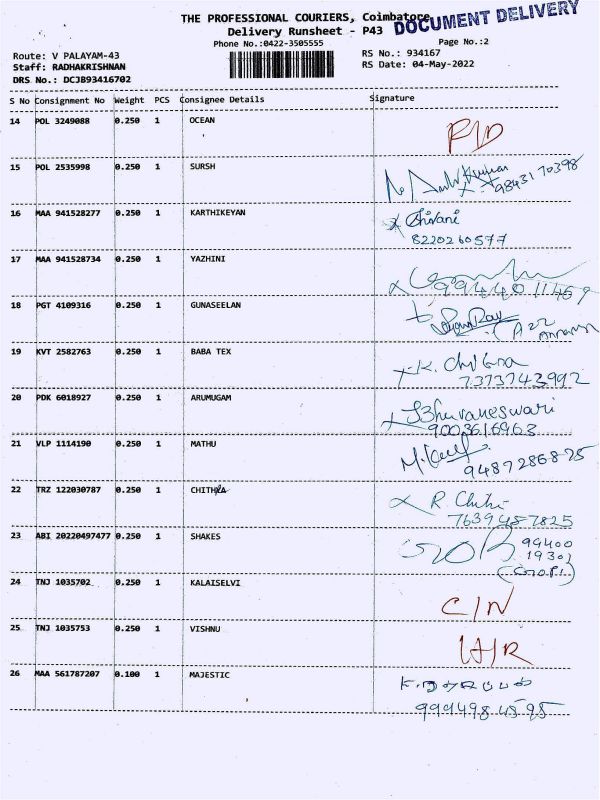 THE PROFESSIONAL COURIERS, Coimbatore
DOCUMENT DELIVERY
Delivery Runsheet - P43
Phone No.:0422-3505555
Page No.:2
Route: V PALAYAM-43
RS No.: 934167
Staff: RADHAKRISHNAN
RS Date: 04-May-2022
DRS No.: DCJB93416702
S No Consignment No Weight PCS Consignee Details Signature
14 POL 3249088 0.250 1 OCEAN
15 POL 2535998 0.250 1 SURSH
9843170398
16 MAA 941528277 0.250 1 KARTHIKEYAN
Shivani
8220260577
17 MAA 941528734 0.250 1 YAZHINI
9944011469
18 PGT 4109316 0.250 1 GUNASEELAN
19 KVT 2582763 0.250 1 BABA TEX
K. Chitra
7373743992
20 PDK 6018927 0.250 1 ARUMUGAM
Bhuvaneswari
9003616963
21 VLP 1114190 0.250 1 MATHU
9487286825
22 TRZ 122030787 0.250 1 CHITHRA
R. Chitri
7639487825
23 ABI 20220497477 0.250 1 SHAKES
99400
19301
(GOPI)
24 TNJ 1035702 0.250 1 KALAISELVI
C/N
25 TNJ 1035753 0.250 1 VISHNU
26 MAA 561787207 0.100 1 MAJESTIC
9994984595